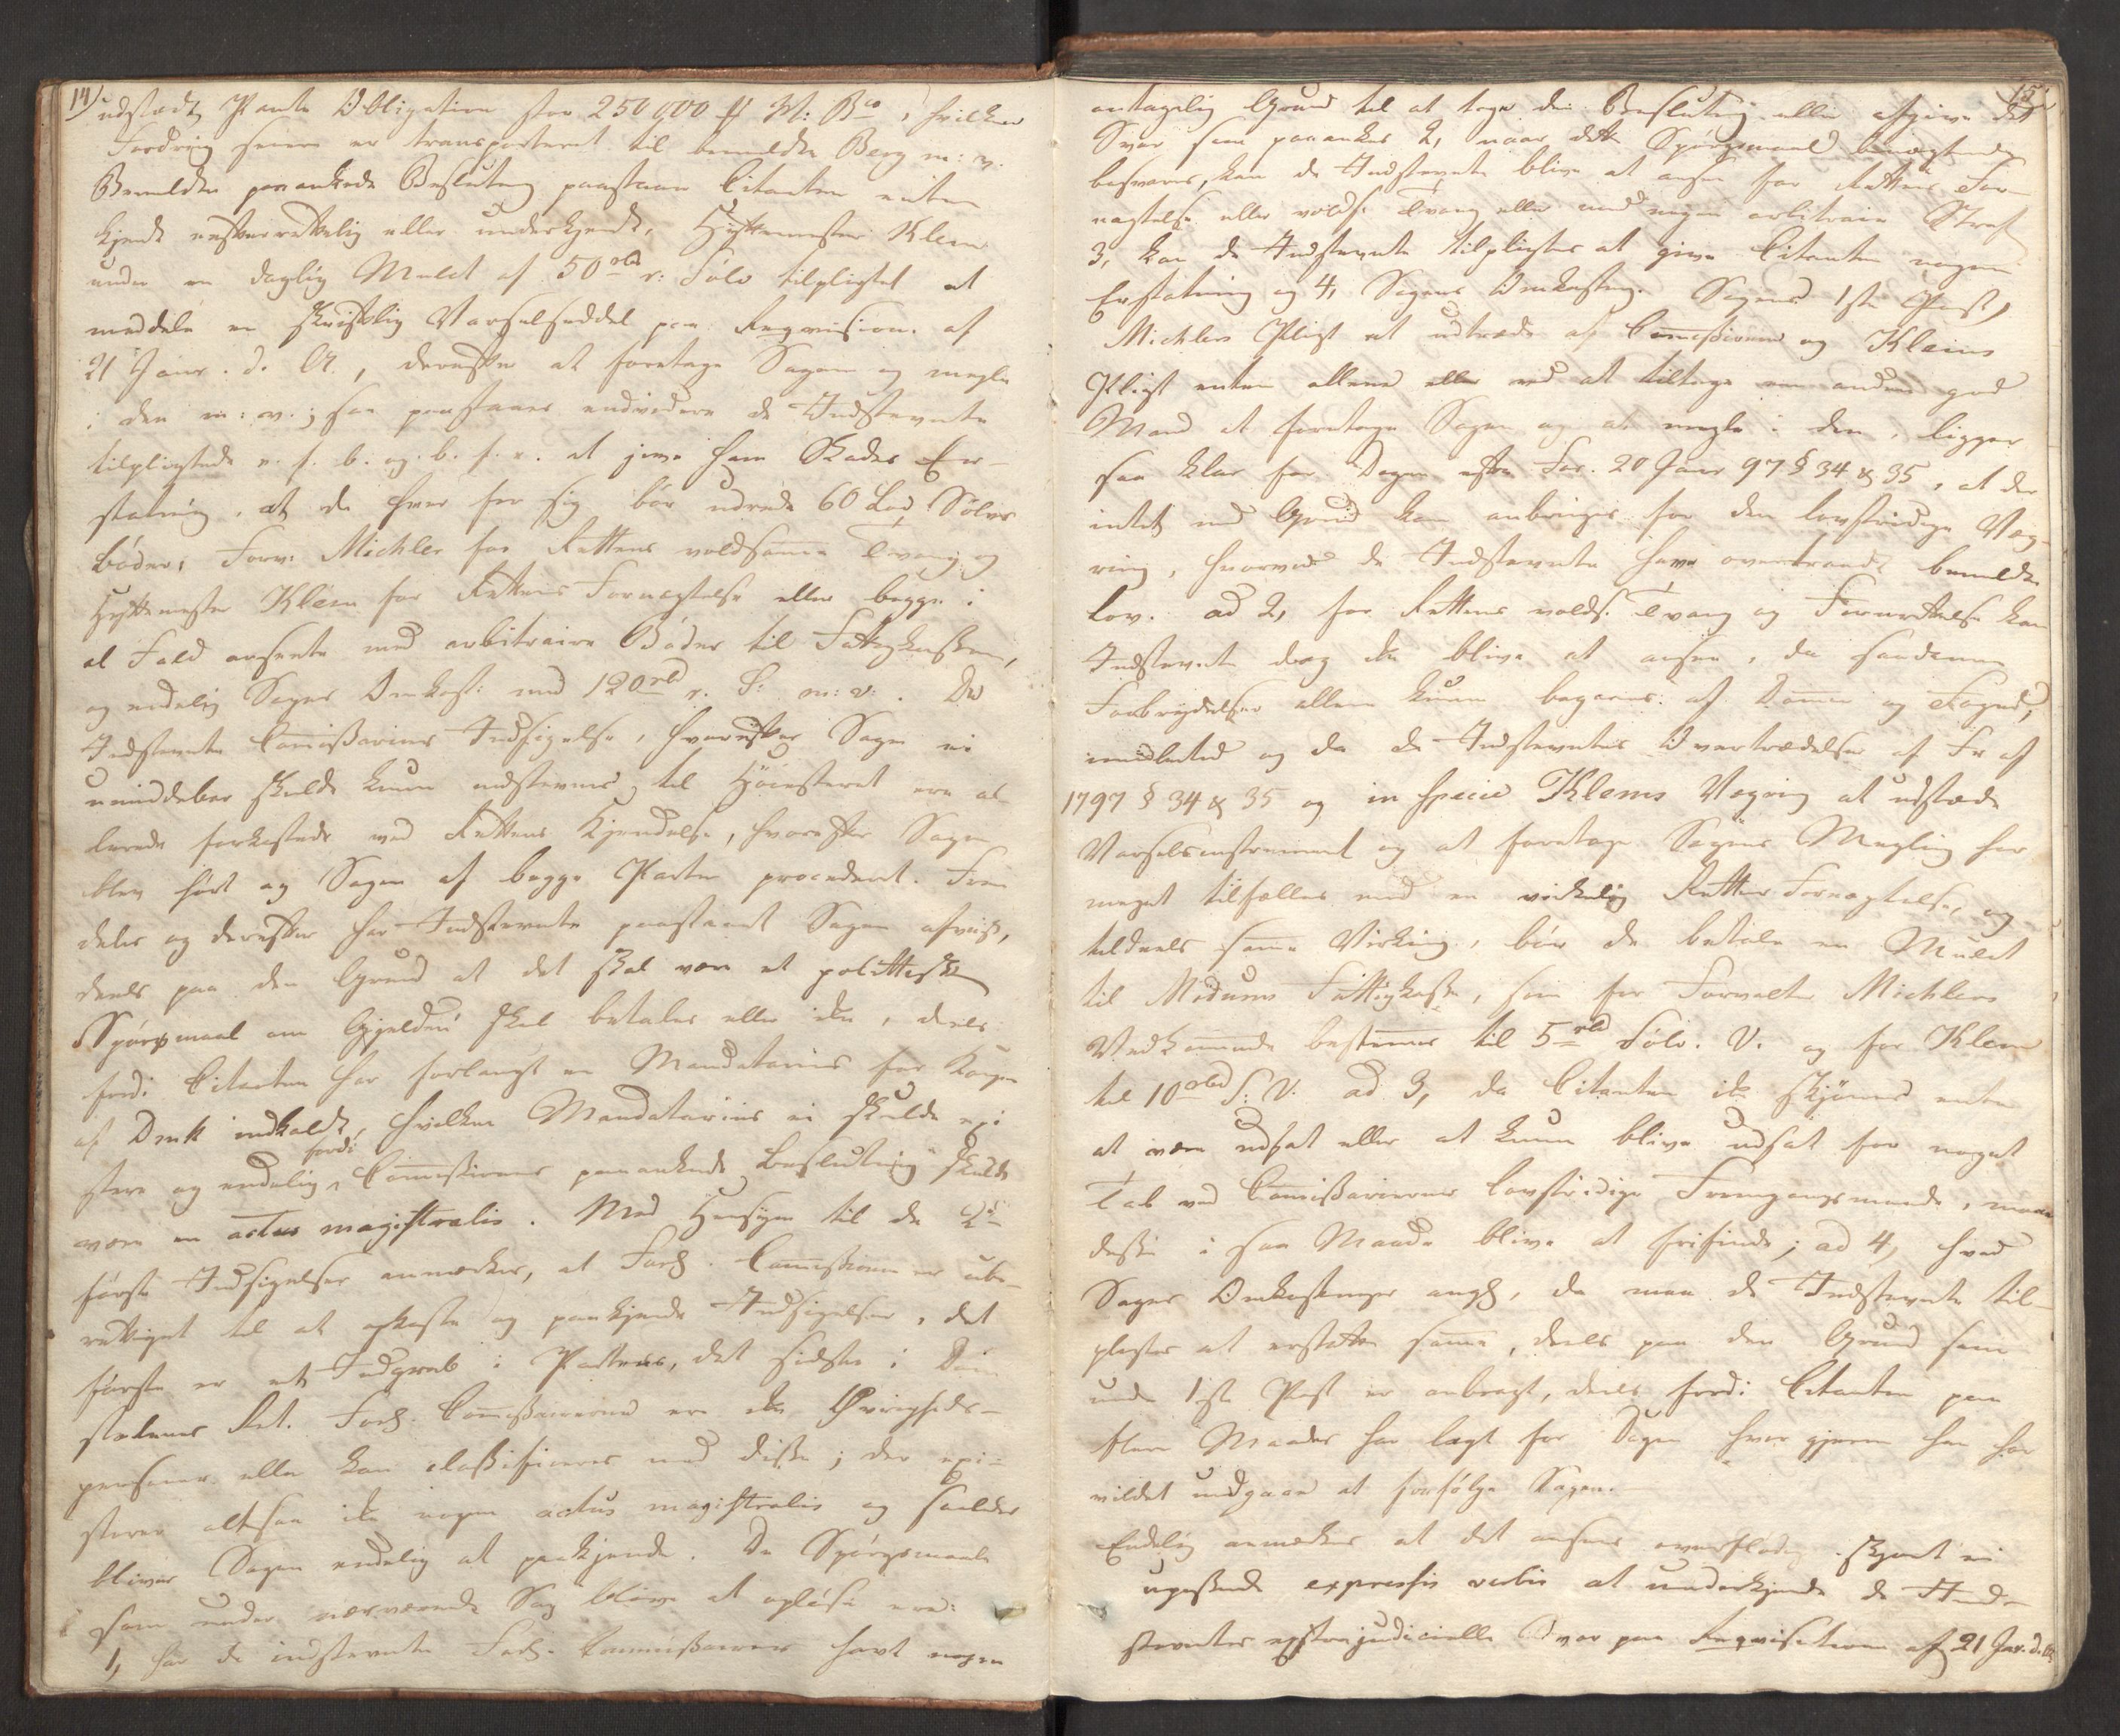 14)
udstædt Pante Obligation stor 250,000 ₶ H: Bco, hvilken
Fordring senere er transporteret til bemeldte Berg m: v.
Bemeldte paaankede Beslutning paastaaer Citanten enten
kjendt uefterrettelig eller underkjendt, Hyttemester Klem
under en daglig Mulct af 50 rbd r: Sølv tilpligtet at
meddele en skriftlig Varselseddel paa Reqvisition af
21 Janr. d. A., derefter at foretage Sagen og megle
i den m: v.; saa paastaaes endvidere de Indstevnte
tilpligtede e. f. b. og b. f. e. at give ham Skades Er-
statning, at de hver for sig bør udrede 60 Lod Sølvs
Bøder, Forv: Michler for Rettens voldsomme Tvang og
Hyttemester Klem for Rettens Fornægtelse eller begge i
al Fald ansees med arbitraire Bøder til Fattigkassen,
og endelig Sagens Omkost: med 120 rbd r. S: m: v: . De
Indstevnte Commissariers Indsigelse, hvorefter Sagen ei
umiddelbar skulde kunne indstevnes til Høiesteret ere al-
lerede forkastede ved Rettens Kjendelse, hvorefter Sagen
blev hørt og Sagen af begge Parter procederet. Frem
deles og derefter har Indstevnte paastaaet Sagen afviist,
deels paa den Grund at det skal være et polittisk
Spørgsmaal om Gjelden skal betales eller ikke, deels
fordi Citanten har forlangt en Mandatarius for Kongen
af Dmk indkaldt, hvilken Mandatarius ei skulde exi-
stere og endelig fordi Commissionens paaankede Beslutning skulde
være en actus magistralis. Med Hensyn til de 2de
første Indsigelser anmærkes, at Forl. Commissionen er ube-
rettiget til at opkaste og paakjende Indsigelser, det
første er et Indgreb i Partens, det sidste i Dom-
stolenes Ret. Forl. Commissairerne ere ikke Øvrigheds-
personer eller kan classificeres med disse; der exi-
sterer altsaa ikke nogen actus magistralis og saaledes
bliver Sagen endelig at paakjende. De Spørgsmaale
som under nærværende Sag blive at opløse ere:
1, har de indstevnte Forl. Commissairer havt nogen
15
antagelig Grund til at tage den Beslutning eller afgive det
Svar som paaankes 2, naar dette Spørgsmaal benægtende
besvares, kan de Indstevnte blive at ansee for Rettens For-
nægtelse eller volds. Tvang eller med nogen arbitrair Straf
3, kan de Indstevnte tilpligtes at give Citanten nogen
Erstatning og 4, Sagens Omkostning. Sagens 1ste Post,
Michlers Pligt at udtræde af Commissionen og Klems
Pligt enten allene eller ved at tiltage en anden god
Mand at foretage Sagen og at megle i den, ligger
saa klar for Dagen efter For. 20 Janr 97 § 34 & 35, at der
intet med Grund kan anbringes for den lovstridige Væg-
ring, hvorved de Indstevnte have overtraadt bemeldte
Lov. ad 2, for Rettens volds. Tvang og Fornægtelse kan
Indstevnte dog ikke blive at ansee, da saadanne
Forbrydelser allene kunne begaaes af Dommer og Foged,
imidlertid og da de Indstevntes Overtrædelse af Fr af
1797 § 34 & 35 og in specie Klems Vægring at udstæde
Varselsinstrument og at foretage Sagens Megling har
meget tilfælles med en virkelig Rettens Fornægtelse, og
tildeels samme Virkning, bør de betale en Mulct
til Modums Fattigkasse, som for Forvalter Michlers
Vedkommende bestemmes til 5 rbd Sølv. V. og for Klem
til 10 rbd S: V. ad 3, da Citanten ikke skjønnes enten
at være udsat eller at kunne blive udsat for noget
Tab ved Commissariernes lovstridige Fremgangsmaade, maae
disse i saa Maade blive at frifinde; ad 4, hvad
Sagens Omkostninger angl, da maa de Indstevnte til-
pligtes at erstatte samme, deels paa den Grund som
under 1ste Post er anbragt, deels fordi Citanten paa
flere Maader har lagt for Dagen hvor gjerne han har
villet undgaae at forfølge Sagen.
Endelig anmærkes at det ansees overflødig skjønt ei
upassende expressis verbis at underkjende de Ind-
stevntes extrajudicielle Svar paa Reqvisitionen af 21 Jan. d. A.